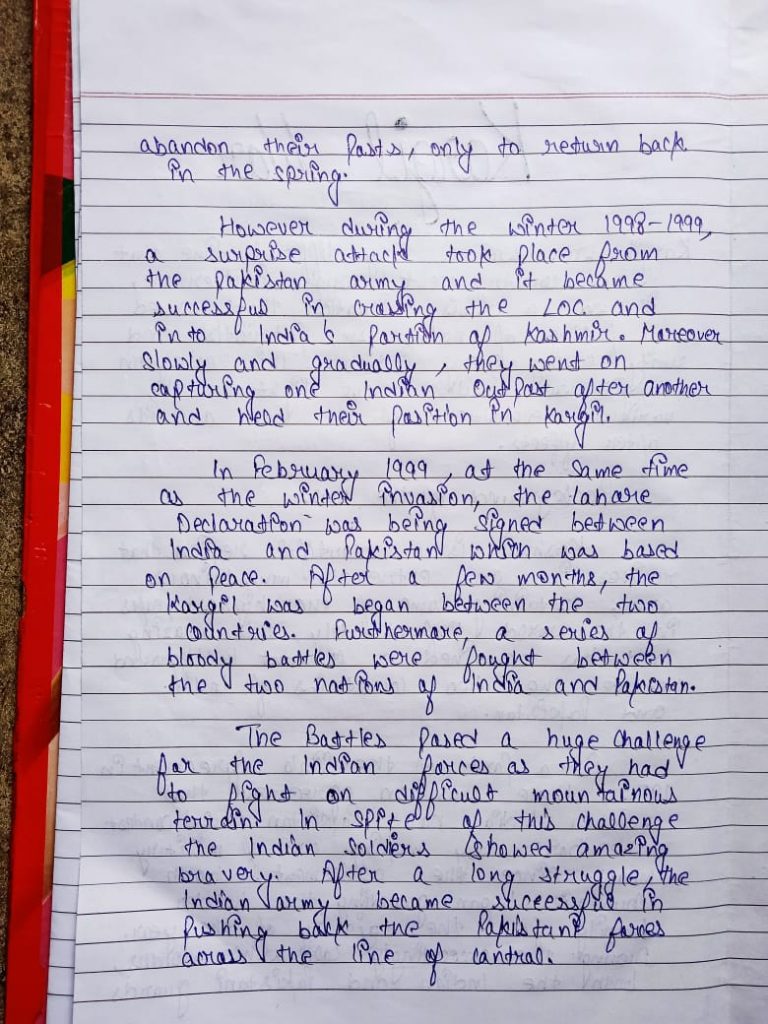 abandon their Posts, only to return back
in the spring.
However during the winter 1998-1999,
a surprise attack took place from
the pakistan army and it became
successful in crossing the LOC and
into India's portion of Kashmir. Moreover
slowly and gradually, they went on
capturing one Indian Outpost after another
and held their position in Kargil.
In February 1999, at the same time
as the winter invasion, the lahore
Declaration was being signed between
India and Pakistan which was based
on Peace. After a few months, the
Kargil was began between the two
countries. Furthermore, a series of
bloody battles were fought between
the two nations of India and Pakistan.
The Battles posed a huge challenge
for the Indian forces as they had
to fight on difficult mountainous
terrain. In spite of this challenge
the Indian soldiers showed amazing
bravery. After a long struggle, the
Indian army became successful in
pushing back the Pakistani forces
across the line of control.